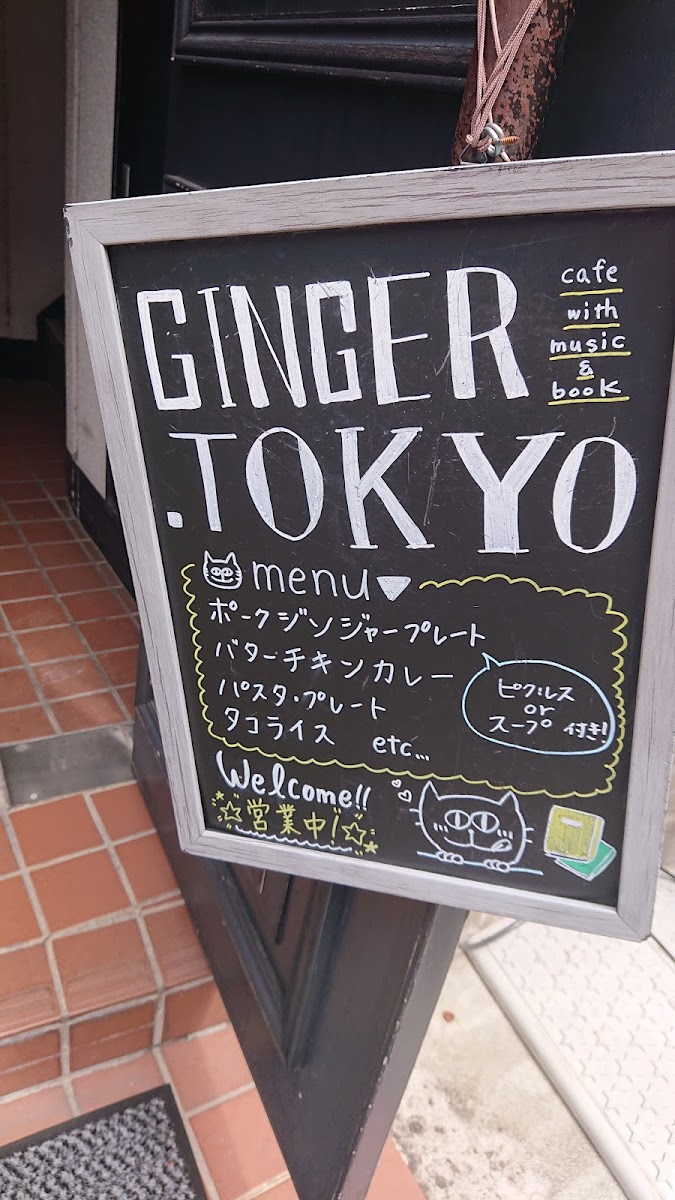 GINGER
.TOKYO
cafe
with
music
&
book
menu
ポークジンジャープレート
バターチキンカレー
パスタ・プレート
タコライス etc...
ピクルス
or
スープ 付き!
Welcome!!
☆営業中!☆